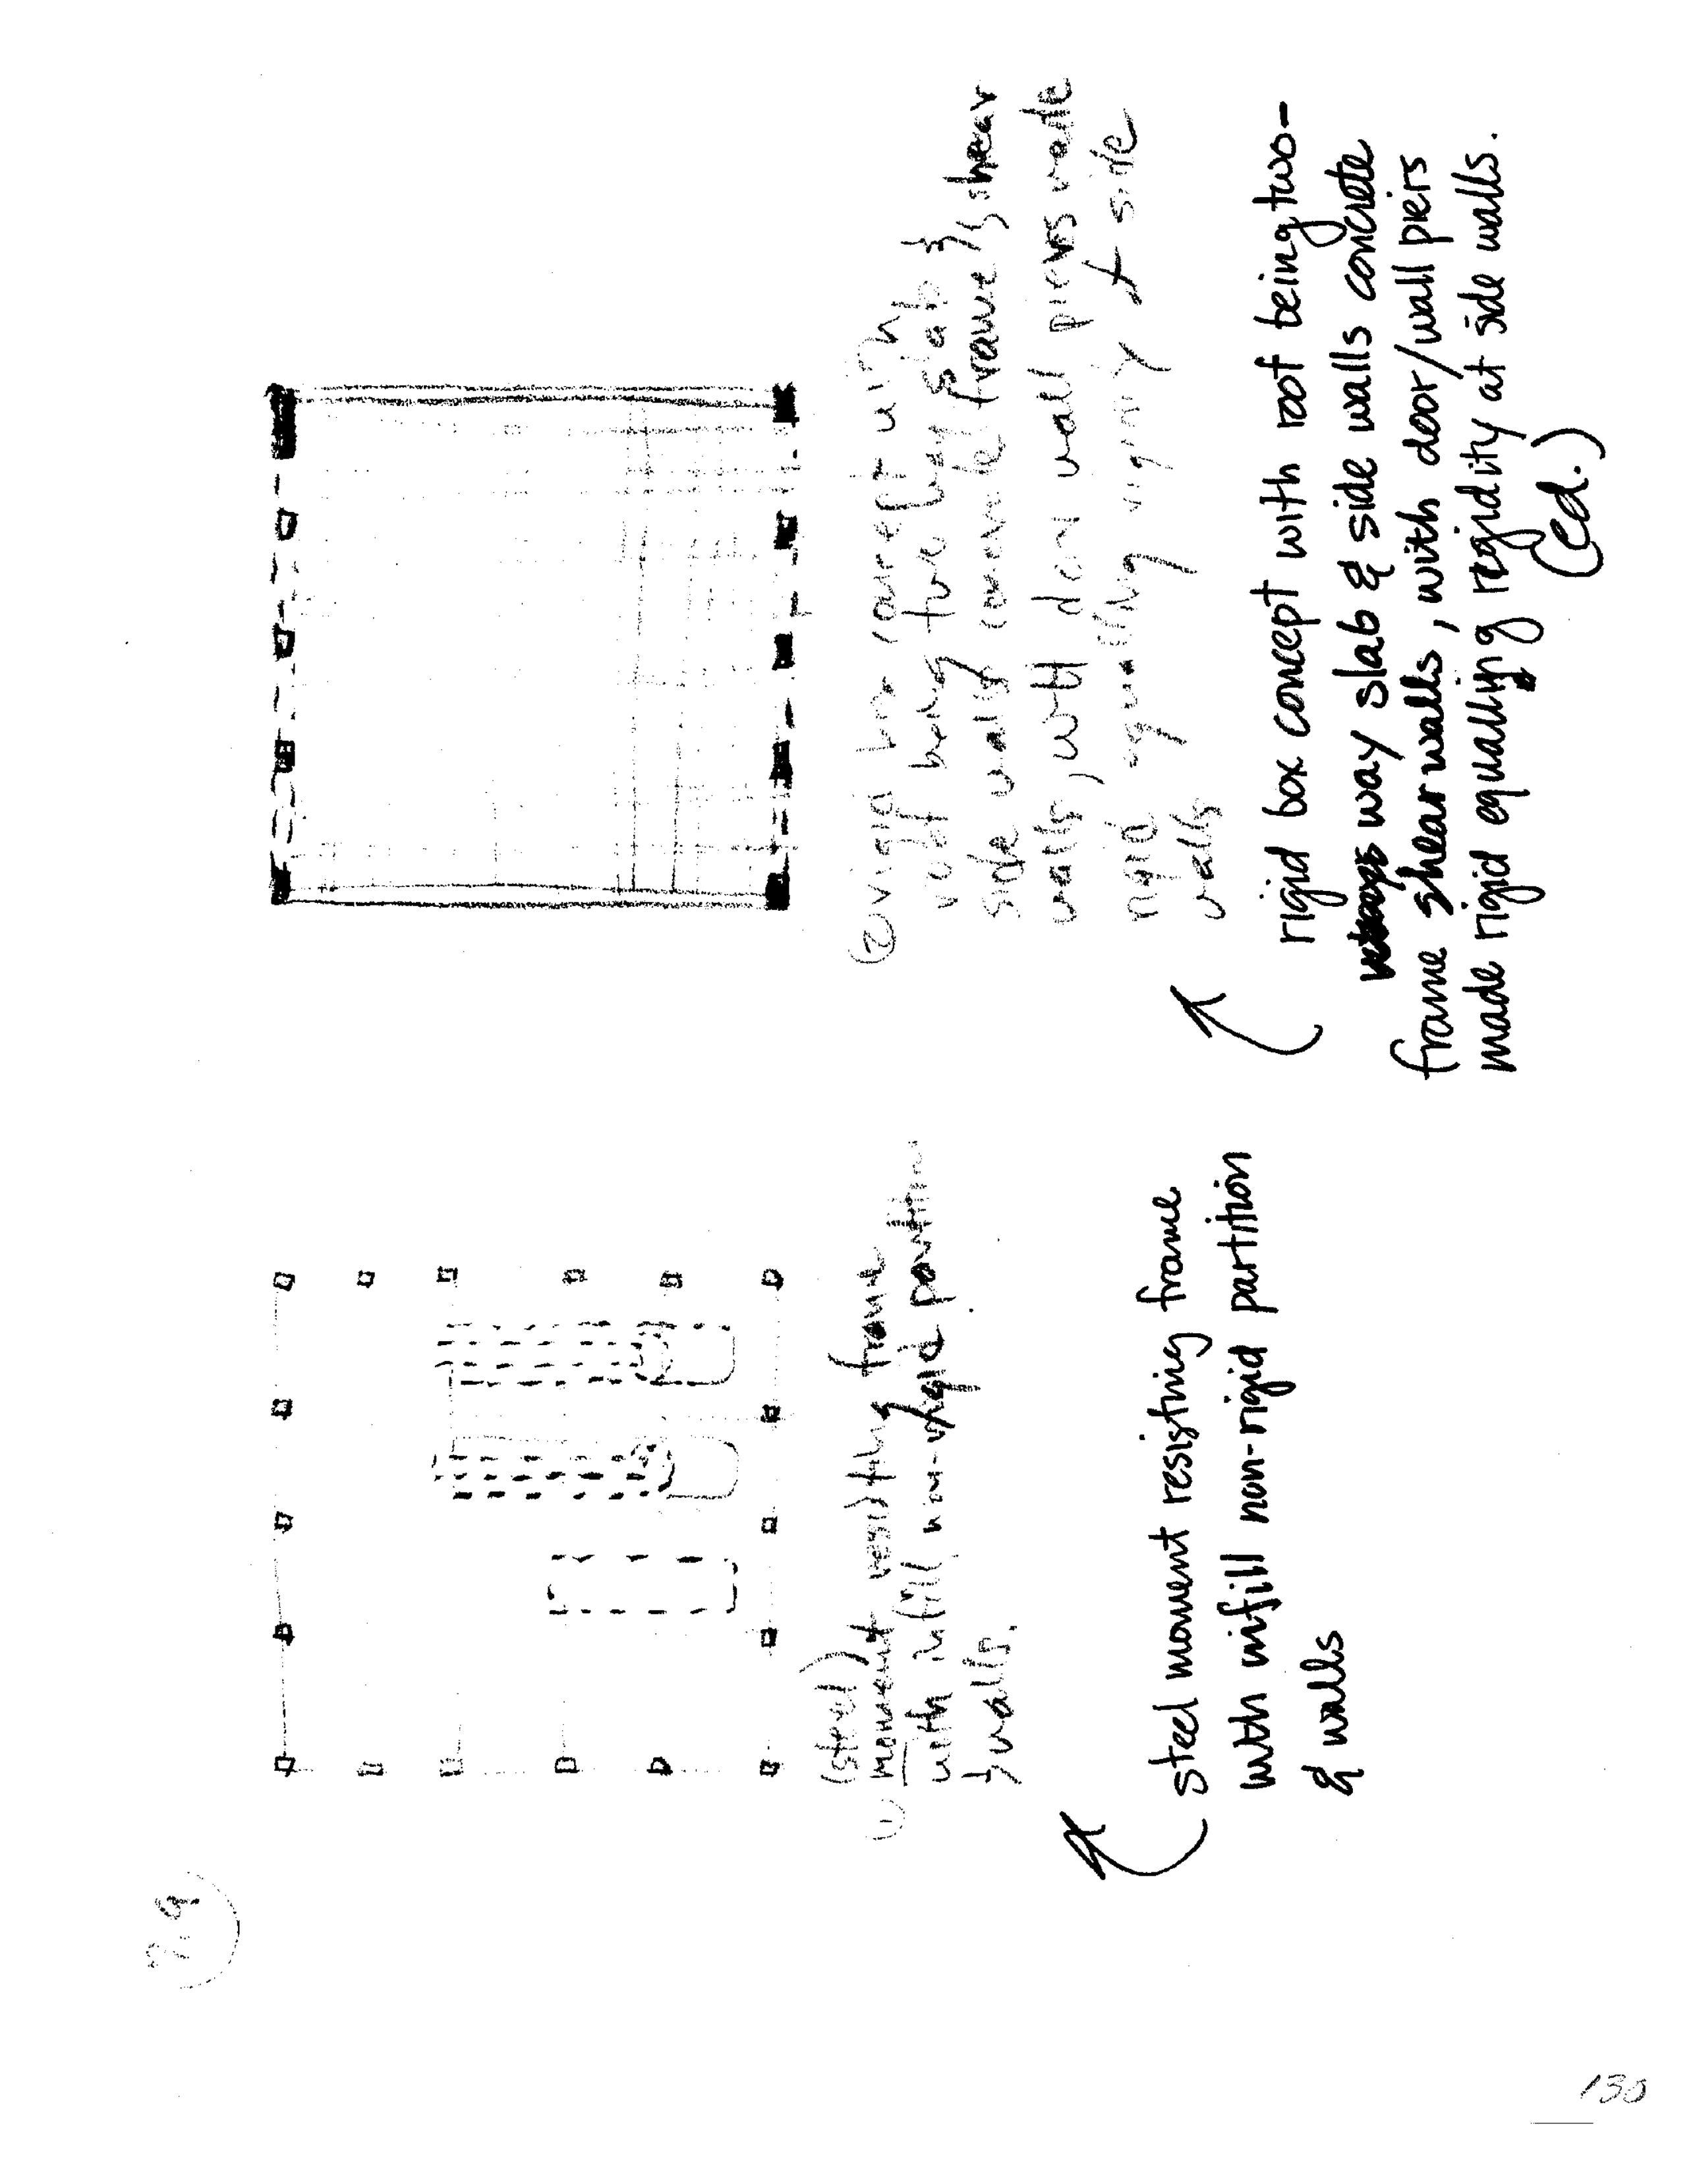 (steel)
① moment resisting frame
with infill non-rigid partition
& walls.
steel moment resisting frame
with infill non-rigid partition
& walls
② rigid box concept with
roof being two way slab &
side walls concrete frame/shear
walls, with door wall piers made
rigid equalling rigidity of side
walls
rigid box concept with roof being two-
way slab & side walls concrete
frame shear walls, with door/wall piers
made rigid equalling regidity at side walls.
(ed.)
130